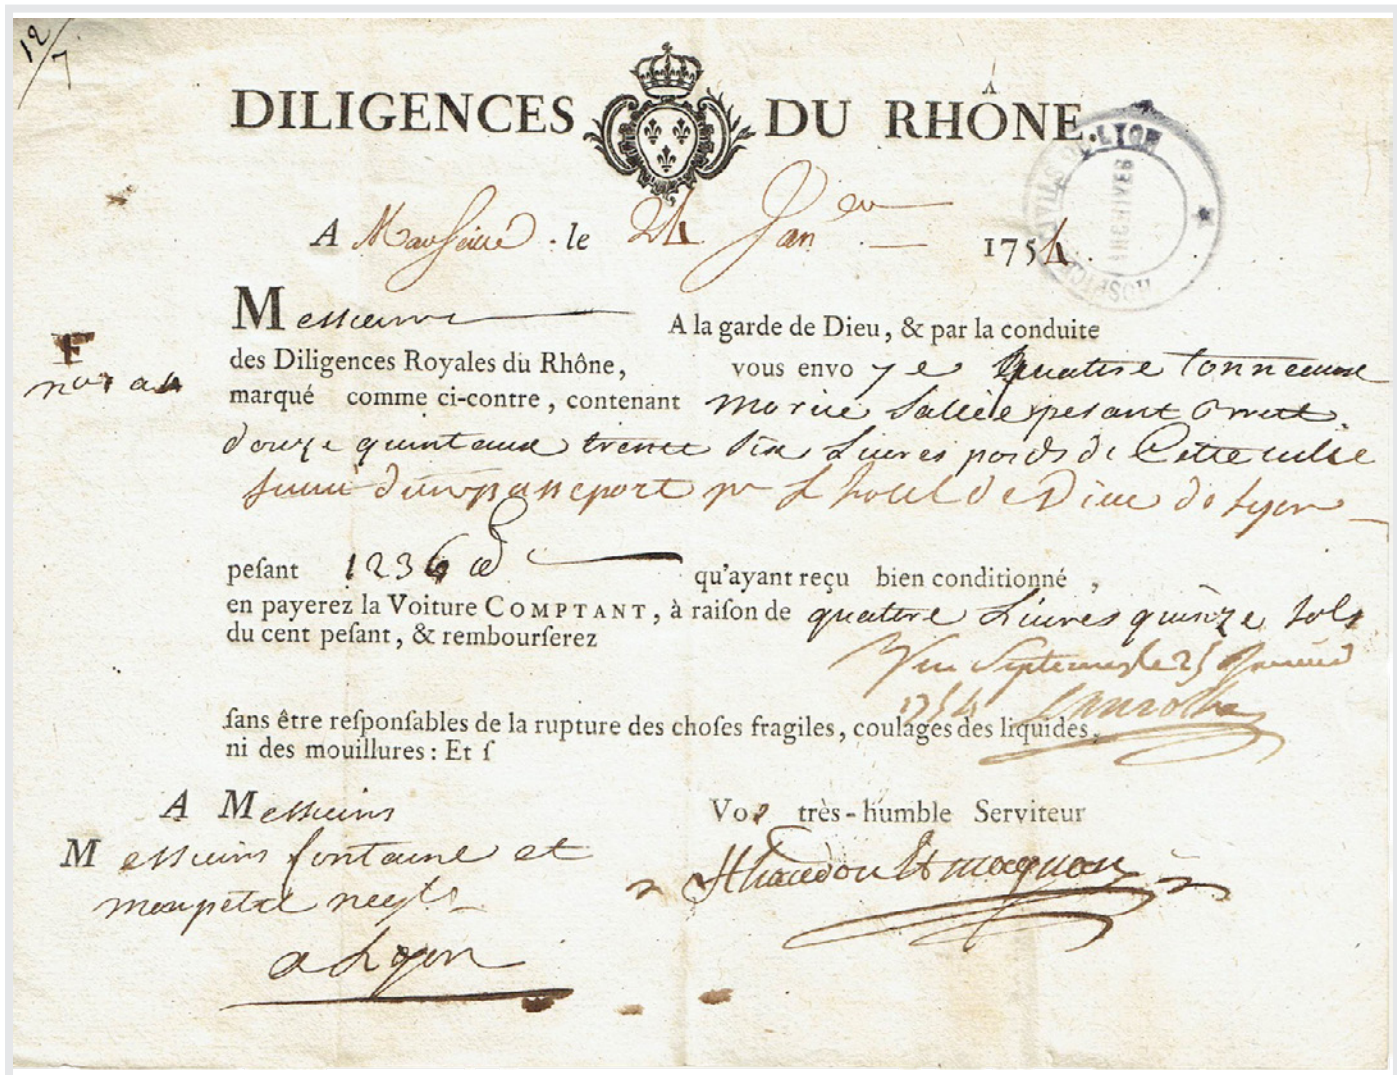 12/7
DILIGENCES DU RHÔNE.
HOSPICES CIVILS DE LYON
ARCHIVES
A Marseille . le 24 Janer 1754.
Messieurs A la garde de Dieu, & par la conduite
des Diligences Royales du Rhône, vous envoye quatre tonneaux
F
marqué comme ci-contre, contenant morue Sallée pesant Brutt
douze quintaux trente six Livres poids de Cette ville
suivi d'un passeport pr L'hotel de Dieu de Lyon
peſant 1236 qu'ayant reçu bien conditionné ,
en payerez la Voiture COMPTANT, à raiſon de quatre Livres quinze sols
du cent peſant, & rembourſerez
Vu a Septemes le 25 Janvier
1754
ſans être reſponſables de la rupture des choſes fragiles, coulages des liquides,
ni des mouillures : Et ſ
A Messieurs Vos très-humble Serviteur
Messieurs fontaine et
maupetit negts
a Lyon